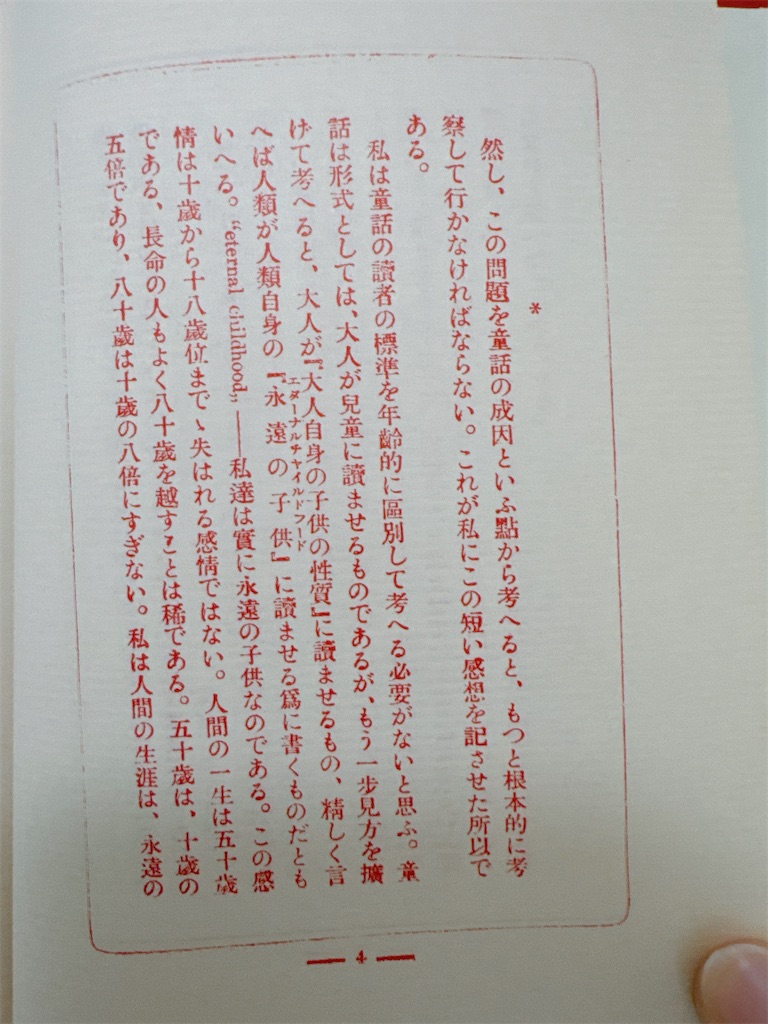 *
然し、この問題を童話の成因といふ點から考へると、もつと根本的に考
察して行かなければならない。これが私にこの短い感想を記させた所以で
ある。
私は童話の讀者の標準を年齡的に區別して考へる必要がないと思ふ。童
話は形式としては、大人が兒童に讀ませるものであるが、もう一步見方を擴
げて考へると、大人が『大人自身の子供の性質』に讀ませるもの、精しく言
へば人類が人類自身の『永遠の子供』に讀ませる爲に書くものだとも
エターナルチャイルドフード
いへる。“eternal childhood„――私達は實に永遠の子供なのである。この感
情は十歲から十八歲位まで、失はれる感情ではない。人間の一生は五十歲
である、長命の人もよく八十歲を越すことは稀である。五十歲は、十歲の
五倍であり、八十歲は十歲の八倍にすぎない。私は人間の生涯は、永遠の
— 4 —